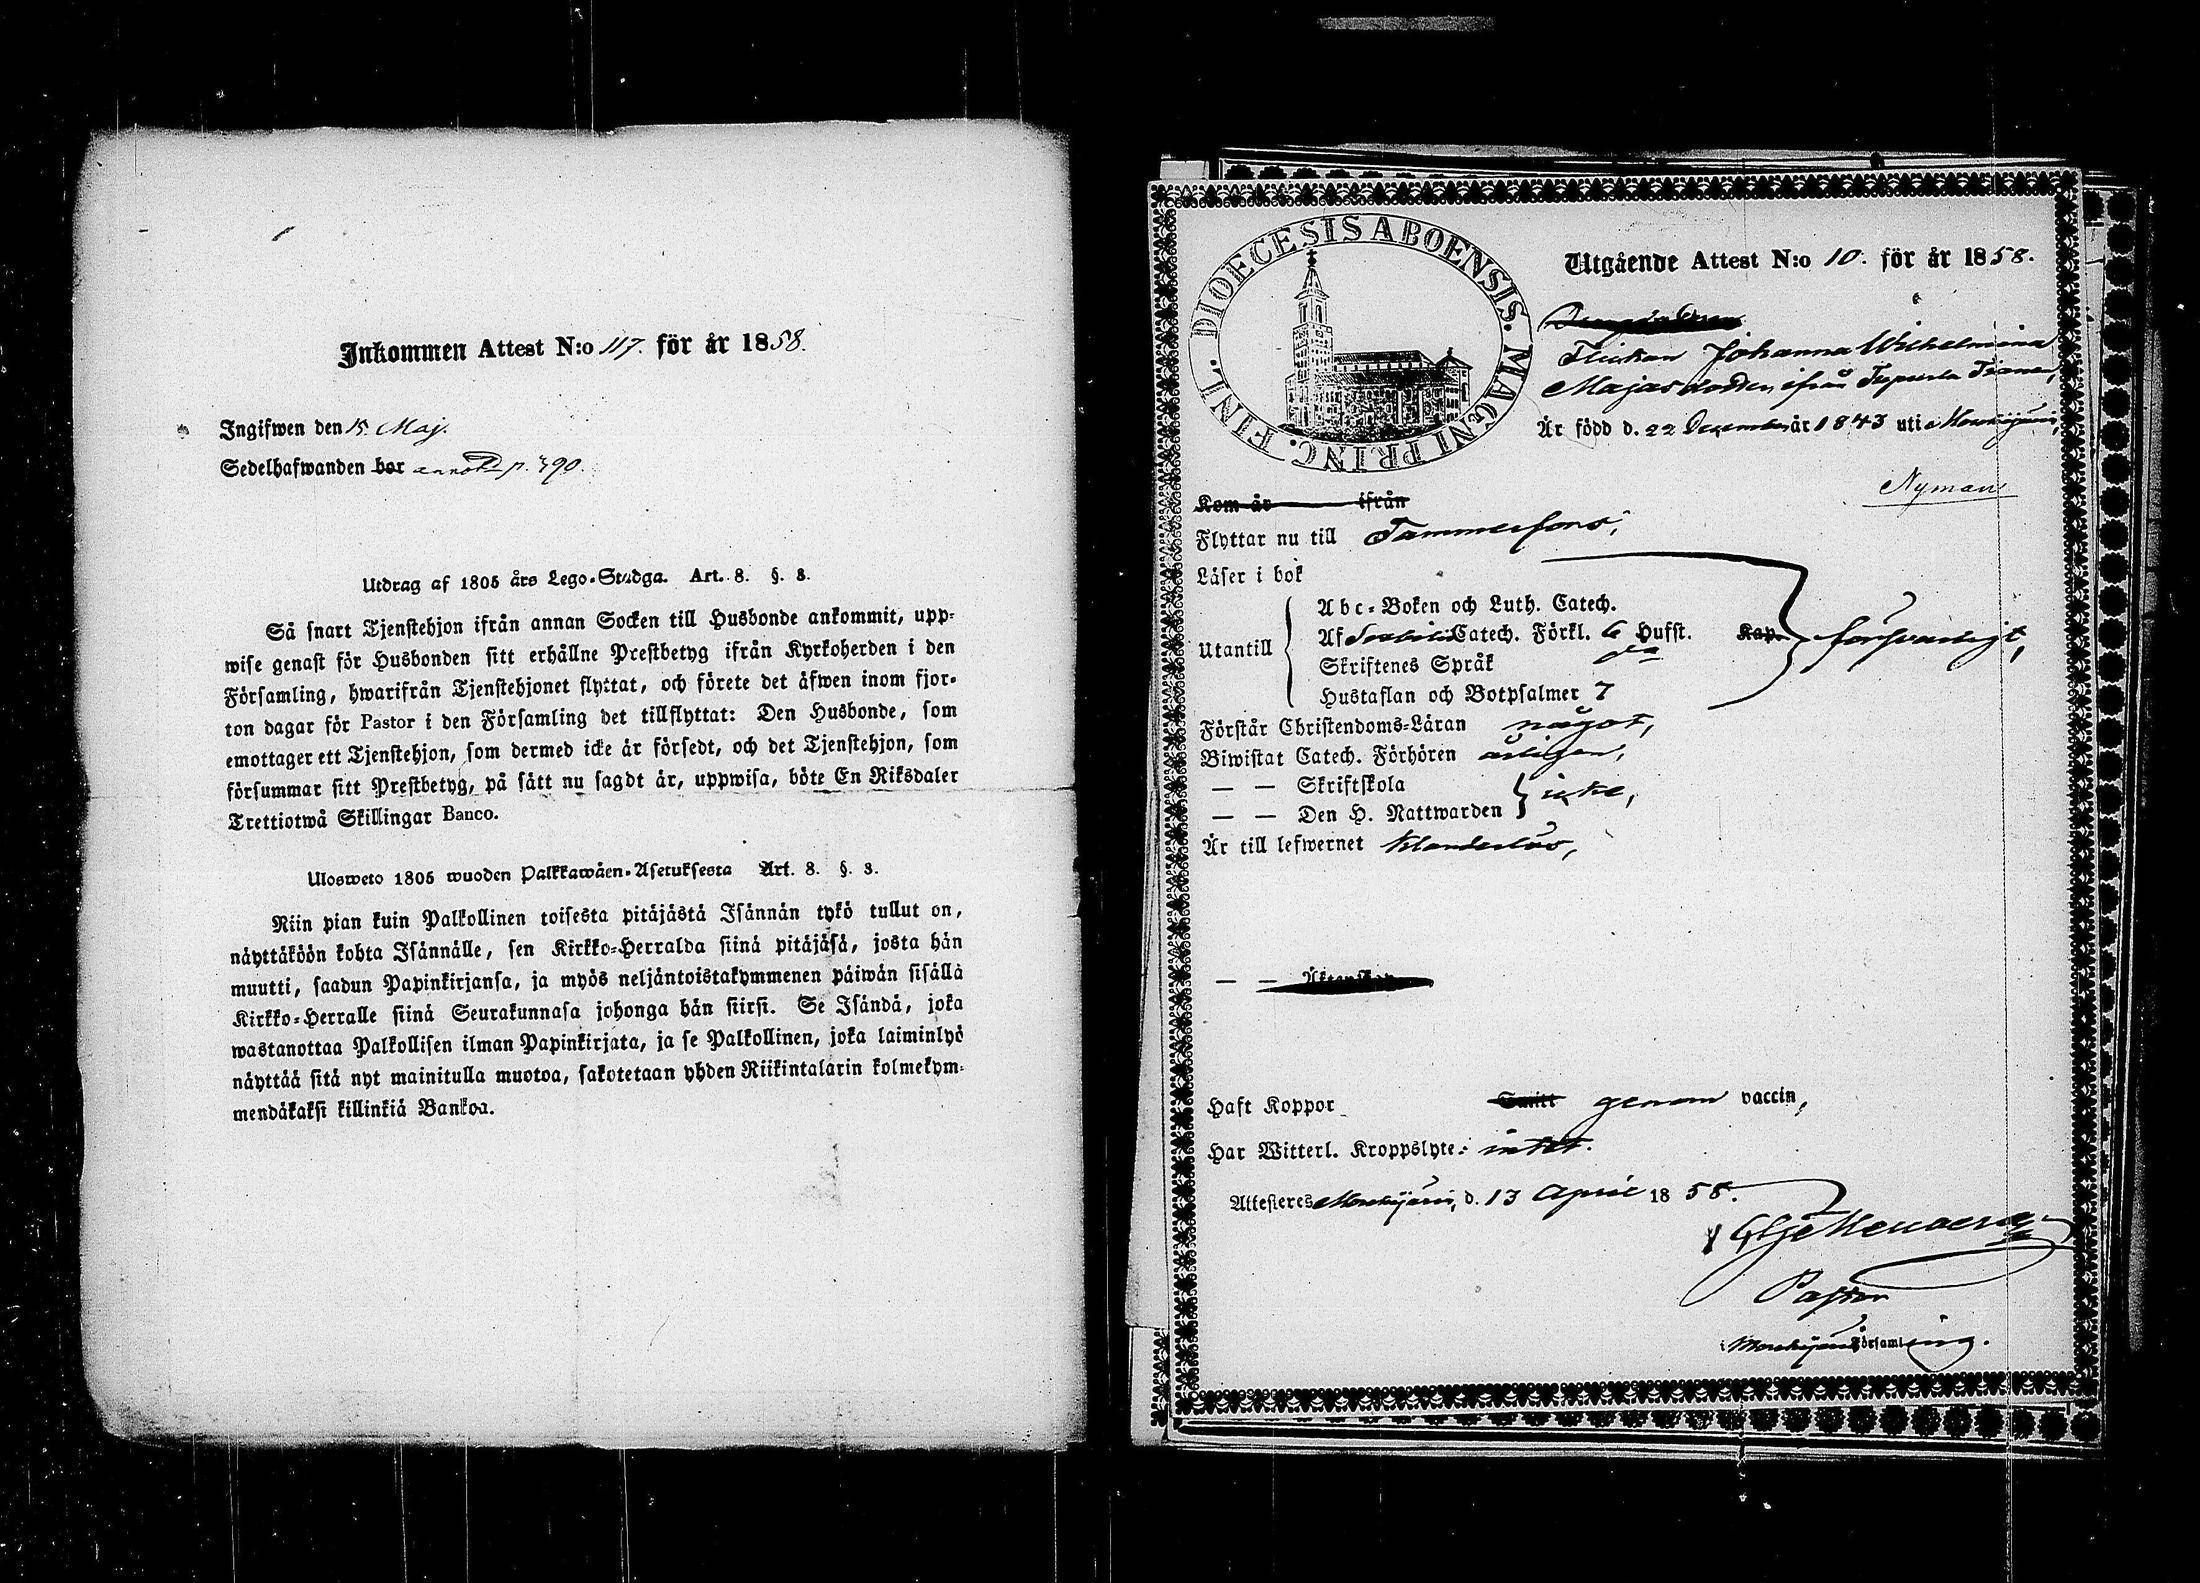 Inkommen Attest N:o 117. för år 1858.
Ingifwen den 15. Maj.
Sedelhafwanden bor annot. p. 490.
Utdrag af 1805 års Lego-Stadga. Art. 8. §. 3.
Så snart Tjenstehjon ifrån annan Socken till Husbonde ankommit, upp-
wise genast för Husbonden sitt erhållne Prestbetyg ifrån Kyrkoherden i den
Församling, hwarifrån Tjenstehjonet flyttat, och förete det äfwen inom fjor-
ton dagar för Pastor i den Församling det tillflyttat: Den Husbonde, som
emottager ett Tjenstehjon, som dermed icke är försedt, och det Tjenstehjon, som
försummar sitt Prestbetyg, på sätt nu sagdt är, uppwisa, böte En Riksdaler
Trettiotwå Skillingar Banco.
Ulosweto 1805 wuoden Palkkawäen-Asetuksesta Art. 8. §. 3.
Niin pian kuin Palkollinen toisesta pitäjästä Isännän tykö tullut on,
näyttäköön kohta Isännälle, sen Kirkko-Herralda siinä pitäjäsä, josta hän
muutti, saadun Papinkirjansa, ja myös neljäntoistakymmenen päiwän sisällä
Kirkko-Herralle siinä Seurakunnasa johonga hän siirsi. Se Isändä, joka
wastanottaa Palkollisen ilman Papinkirjata, ja se Palkollinen, joka laiminlyö
näyttää sitä nyt mainitulla muotoa, sakotetaan yhden Riikintalarin kolmekym-
mendäkaksi killinkiä Bankoa.
DIOECESIS ABOENSIS. MAGNI PRINC. FINL.
Utgående Attest N:o 10. för år 1858.
Flickan Johanna Wilhelmina
Majasdotter, ifrån
Är född d. 22 December år 1843 uti Mouhijärvi,
Nyman
Kom år ifrån
Flyttar nu till Tammerfors,
Läser i bok
Abc-Boken och Luth. Catech.
Utantill Af Catech. Förkl. 6 Hufst. Kap. försvarligt,
Skriftenes Språk
Hustaflan och Botpsalmer 7
Förstår Christendoms-Läran något,
Biwistat Catech. Förhören årligen,
— — Skriftskola
— — Den H. Nattwarden icke,
Är till lefwernet klanderlös,
— — Äktenskap
Haft Koppor genom vaccin,
Har Witterl. Kroppslyte: intet.
Attesteres Mouhijärvi, d. 13 April 1858.
Pastor
i Mouhijärvi Församling.